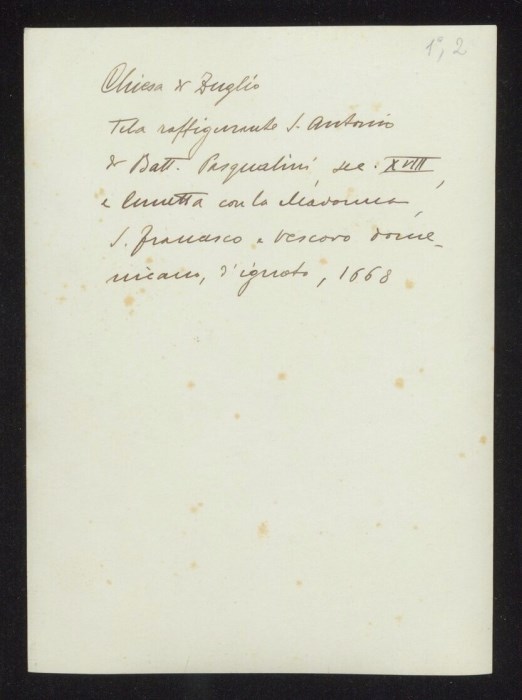 1°, 2
Chiesa di Zuglio
Tela raffigurante S. Antonio
di Batt. Pasqualini, sec. XVIII,
e lunetta con la Madonna,
S. Francesco e Vescovo dome-
nicano, d'ignoto, 1668